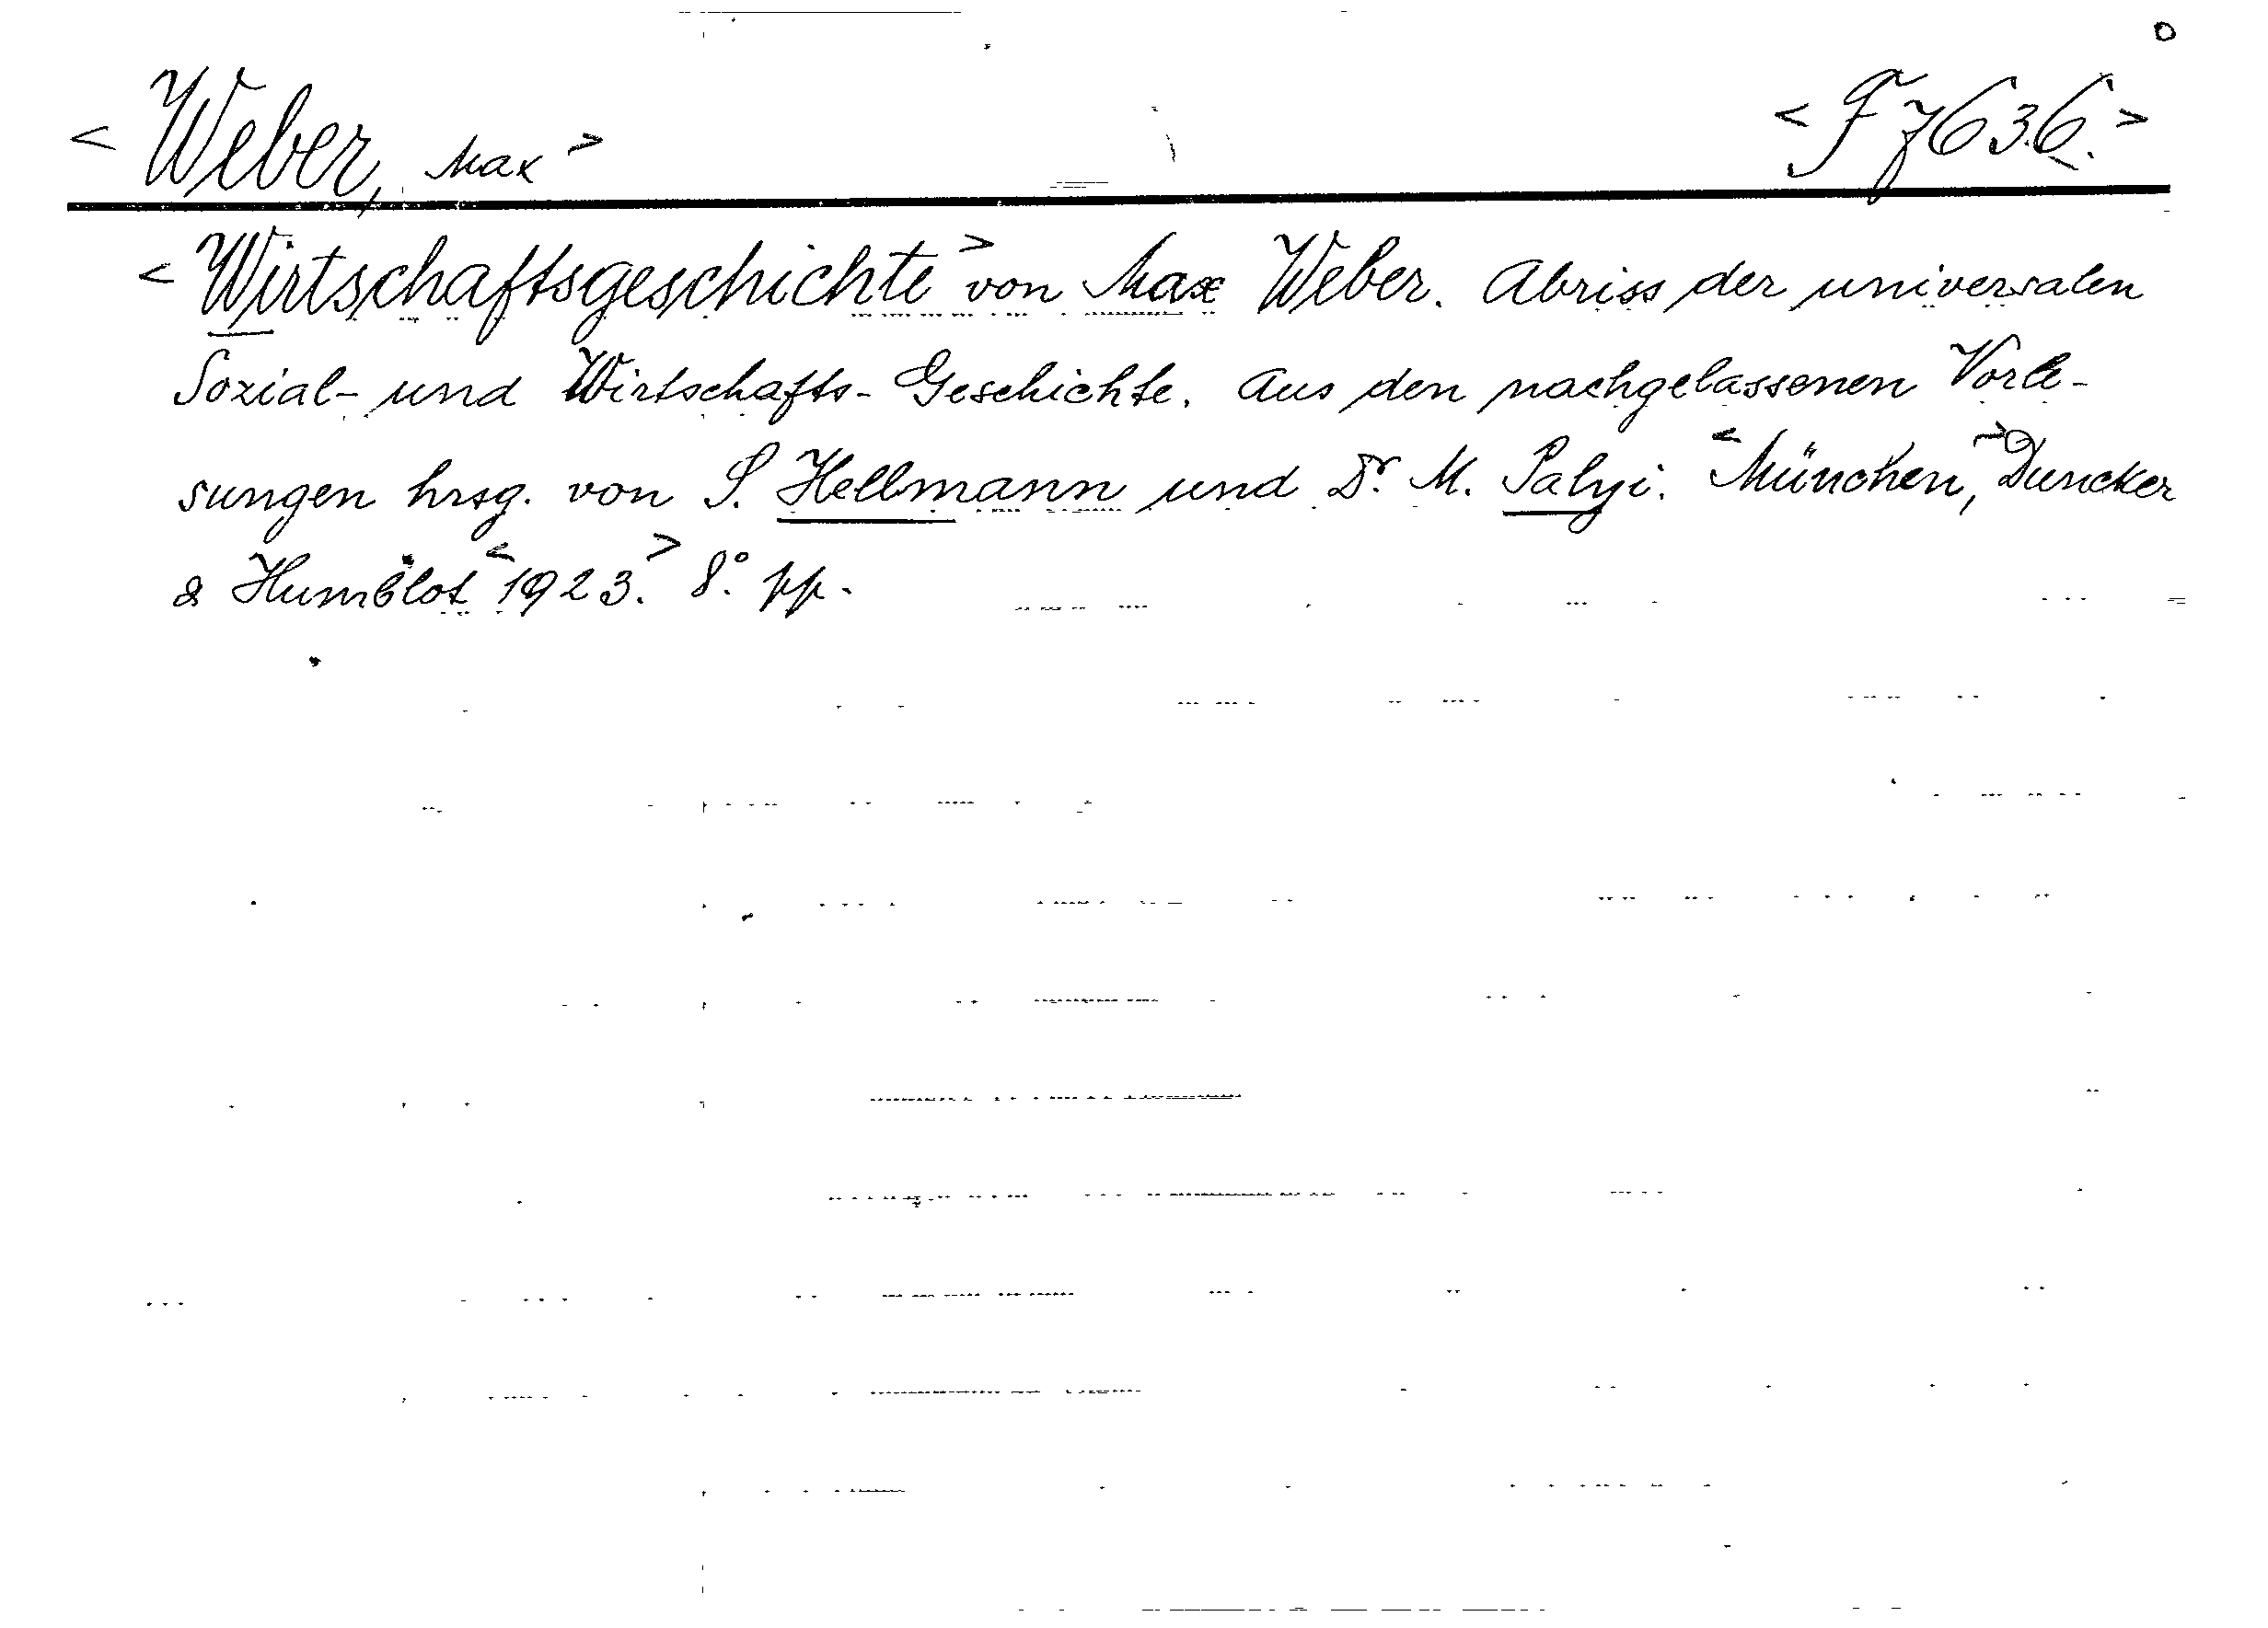 < Weber, Max > < F 7636. >
< Wirtschaftsgeschichte > von Max Weber. Abriss der universalen
Sozial- und Wirtschafts-Geschichte. Aus den nachgelassenen Vorle-
sungen hrsg. von S. Hellmann und Dr. M. Palyi. < München, > Duncker
& Humblot < 1923. > 8°. pp.